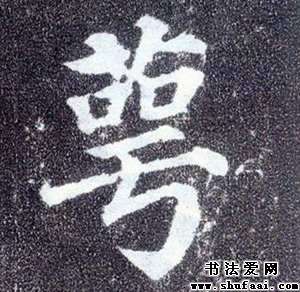 萼
书法爱网
www.shufaai.com